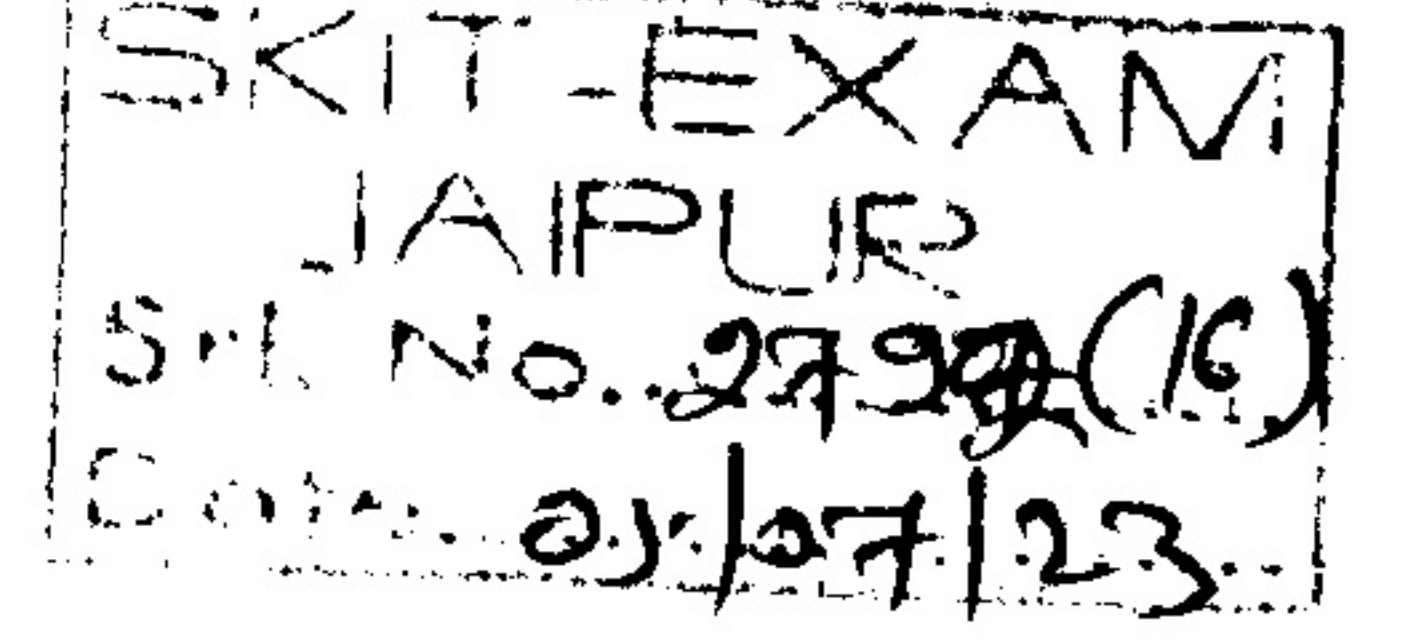 SKIT-EXAM
JAIPUR
Srl. No. (16)
Date 01/07/23